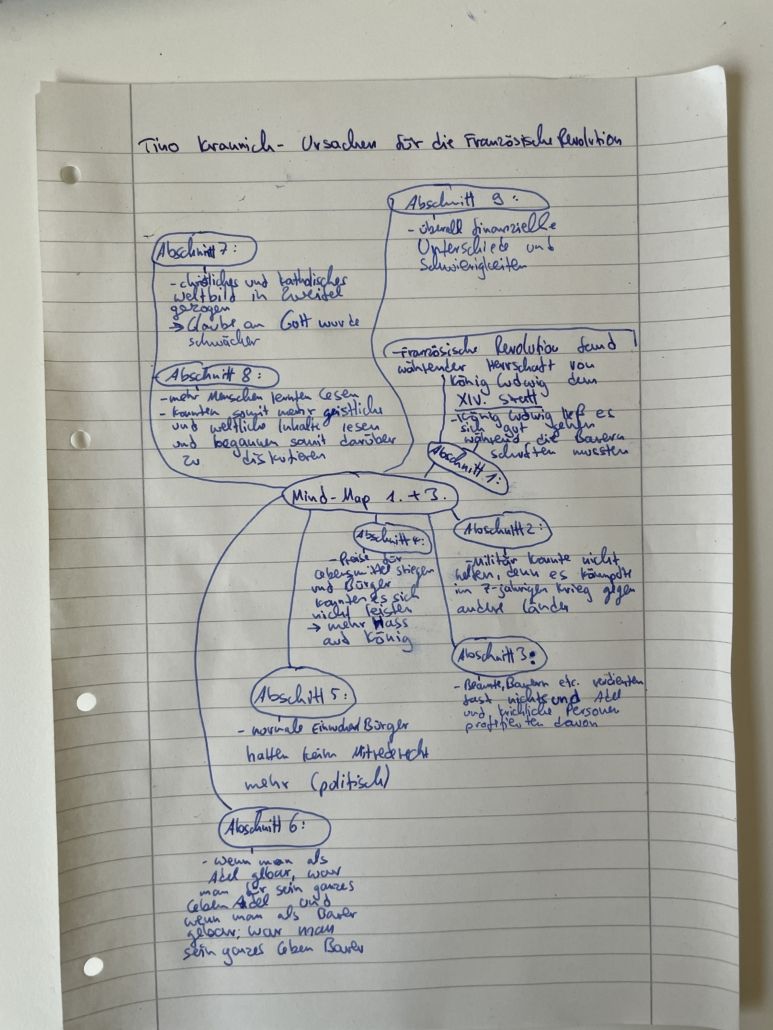 Tino Kraunich - Ursachen für die Französische Revolution
Abschnitt 9:
- überall finanzielle
Unterschiede und
Schwierigkeiten
Abschnitt 7:
- christliches und katholisches
weltbild in Zweifel
gezogen
→ Glaube an Gott wurde
schwächer
Abschnitt 8:
- mehr Menschen lernten lesen
- konnten somit mehr geistliche
und weltliche Inhalte lesen
und begannen somit darüber
zu diskutieren
- Französische Revolution fand
während der Herrschaft von
König Ludwig dem
XIV. statt
- König Ludwig ließ es
sich gut gehen
während die Bauern
schuften mussten
Abschnitt 1:
Mind-Map 1. + 3.
Abschnitt 2:
- Militär konnte nicht
helfen, denn es kämpfte
im 7-jährigen Krieg gegen
andere Länder
Abschnitt 4:
- Preise für
Lebensmittel stiegen
und Bürger
konnten es sich
nicht leisten
→ mehr Hass
auf König
Abschnitt 3:
- Beamte, Bauern etc. verdienten
fast nichts und Adel
und kirchliche Personen
profitierten davon
Abschitt 5:
- normale Bürger
hatten kein Mitrederecht
mehr (politisch)
Abschnitt 6:
- wenn man als
Adel gebar, war
man für sein ganzes
Leben Adel und
wenn man als Barer
gebar; war man
sein ganzes Leben Barer